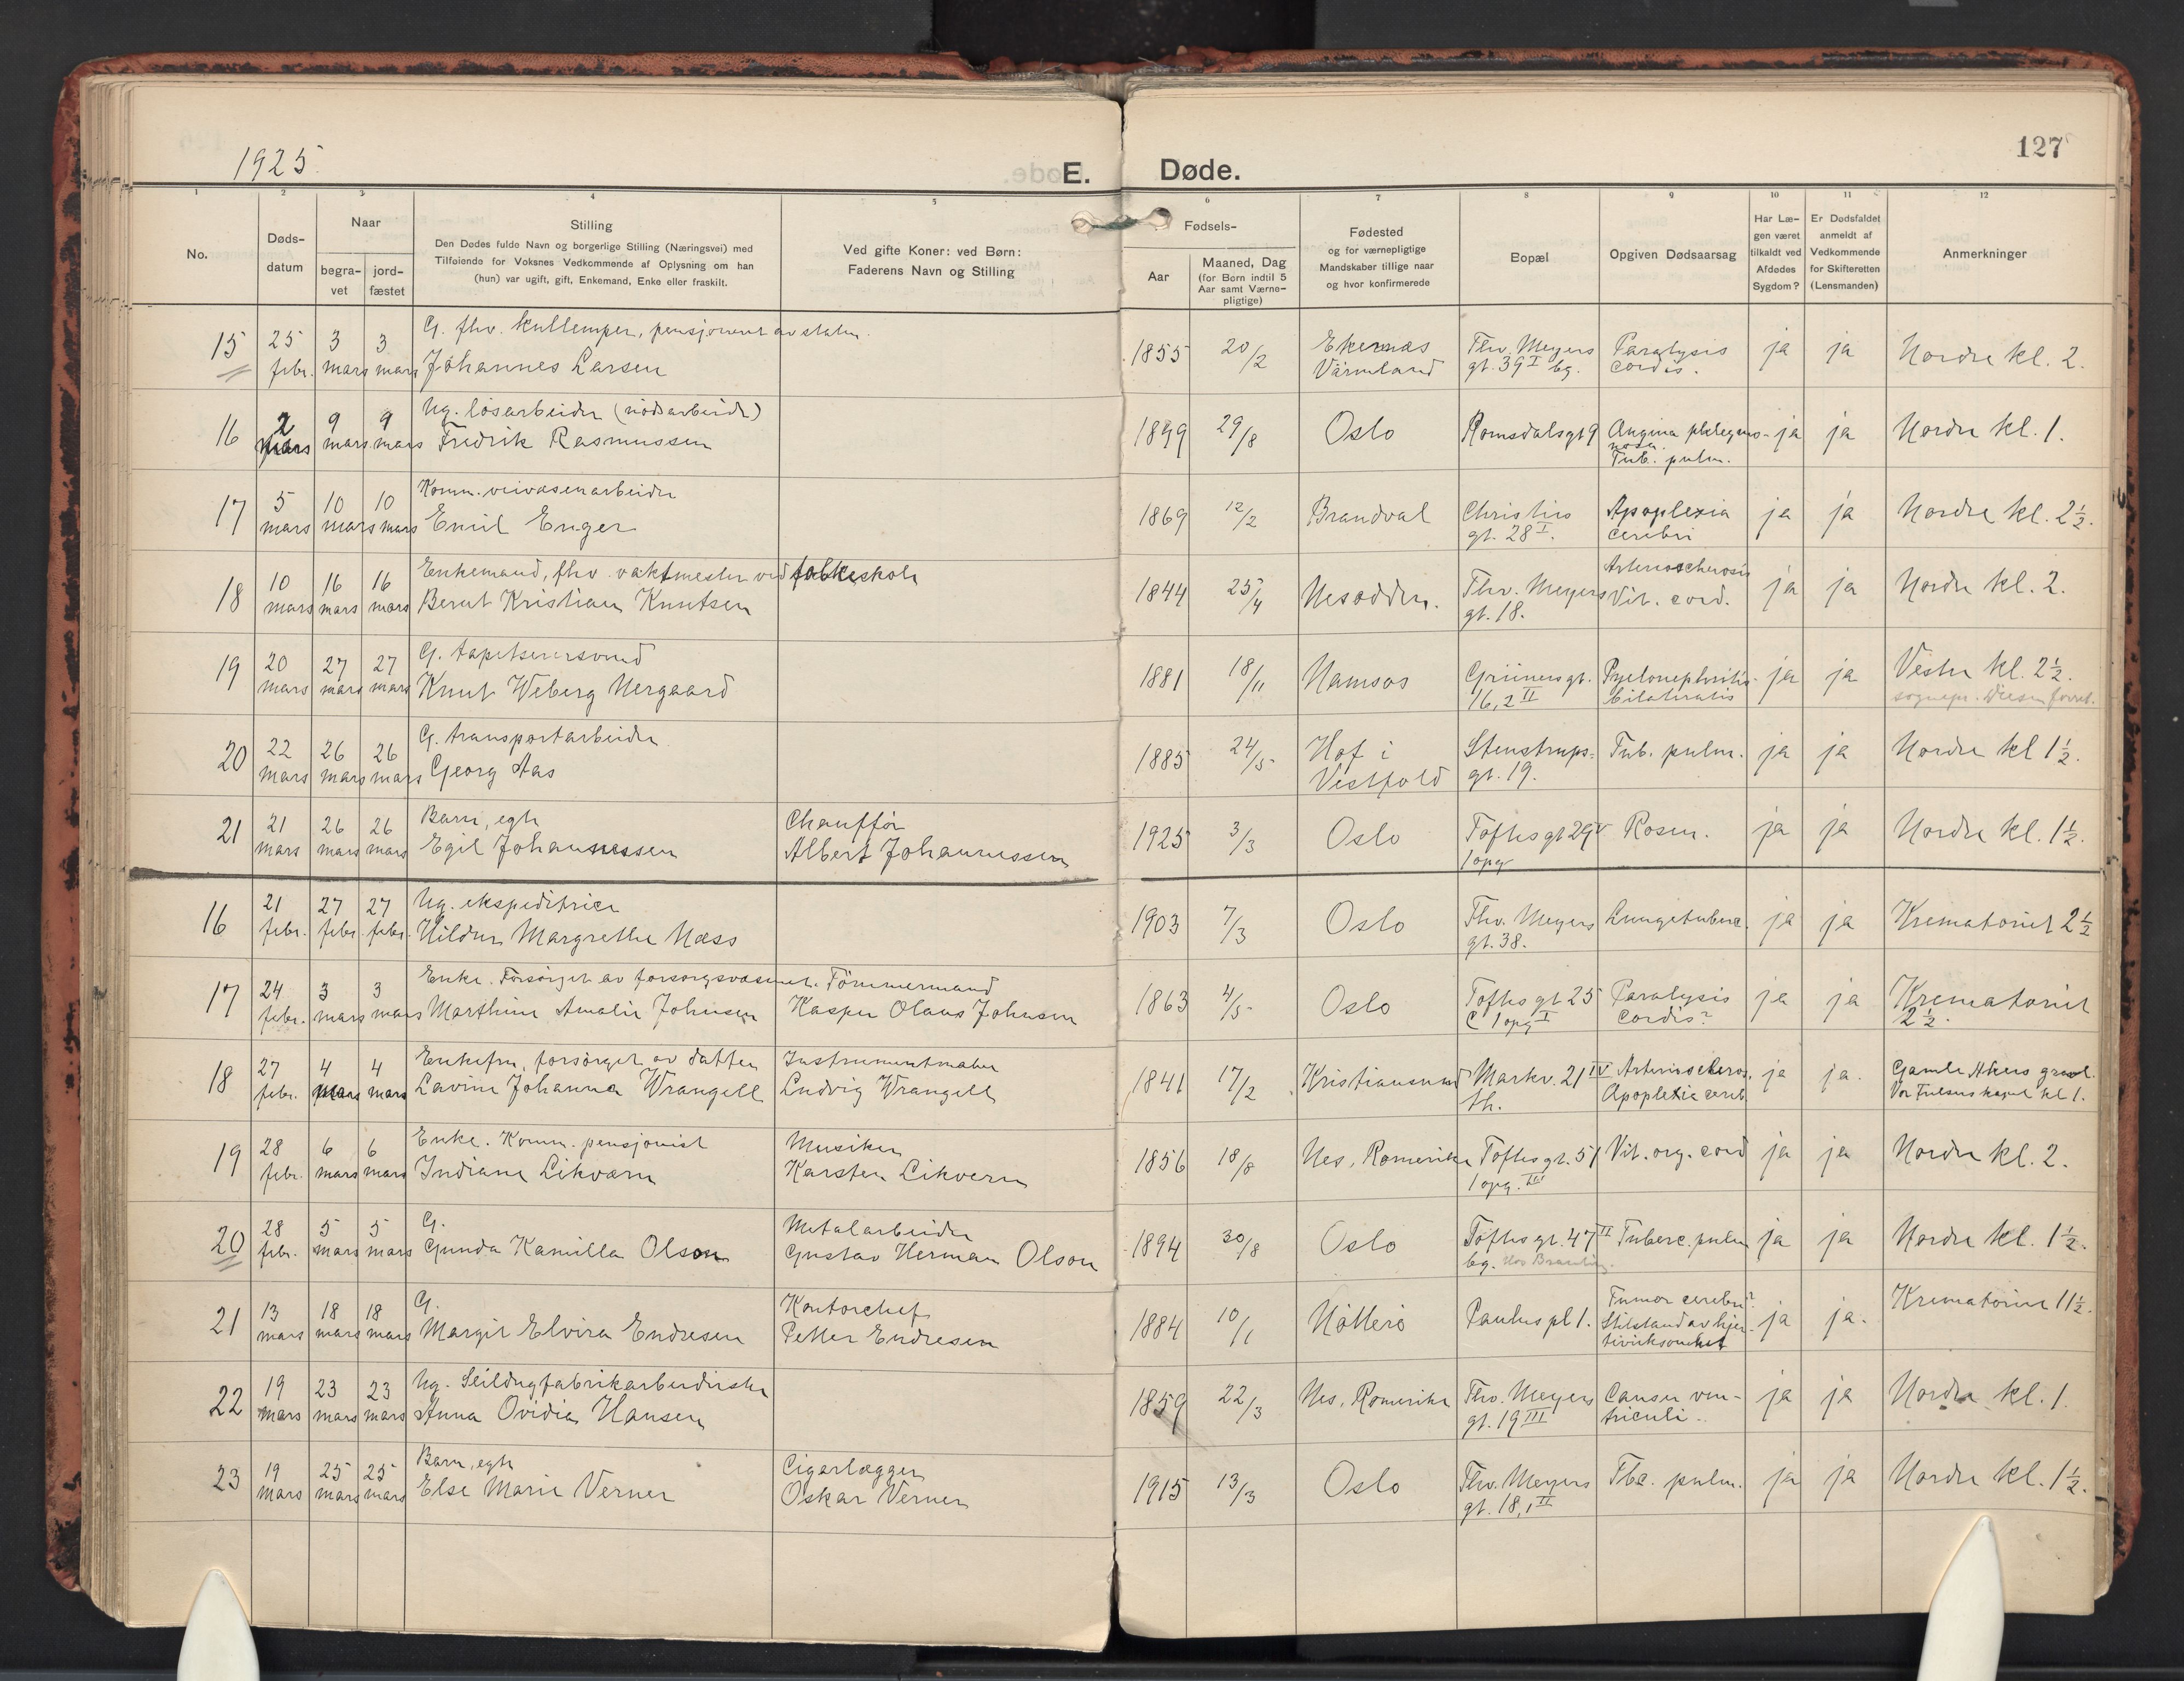 1925.
E. Døde.
127
1 2 3 4 5 6 7 8 9 10 11 12
No.
Døds-
datum
Naar
begra-
vet
jord-
fæstet
Stilling
Den Dødes fulde Navn og borgerlige Stilling (Næringsvei) med
Tilføiende for Voksnes Vedkommende af Oplysning om han
(hun) var ugift, gift, Enkemand, Enke eller fraskilt.
Ved gifte Koner: ved Børn:
Faderens Navn og Stilling
Fødsels-
Aar
Maaned, Dag
(for Børn indtil 5
Aar samt Værne-
pligtige)
Fødested
og for værnepligtige
Mandskaber tillige naar
og hvor konfirmerede
Bopæl
Opgiven Dødsaarsag
Har Læ-
gen været
tilkaldt ved
Afdødes
Sygdom?
Er Dødsfaldet
anmeldt af
Vedkommende
for Skifteretten
(Lensmanden)
Anmerkninger
G. fhv. kullemper, pensjonert av staten.
15 25 3 3 1855 20/2 Ekernäs Thv. Meyers Paralysis ja ja Nordre kl. 2.
febr. mars mars Johannes Larsen Värmland gt. 39 I bg. cordis.
Ug. løsarbeider (nødsarbeide)
16 2 9 9 1899 29/8 Oslo Romsdalsgt 9 Angina phlegmo- ja ja Nordre kl. 1.
mars mars mars Fredrik Rasmussen nosa.
Tub. pulm.
Komm. veivæsenarbeider
17 5 10 10 1869 12/2 Brandval Christies Apoplexia ja ja Nordre kl. 2½.
mars mars mars Emil Enger gt. 28 I. cerebri
Enkemand, fhv. vaktmester ved folkeskole Arterioscherosis
18 10 16 16 1844 25/4 Nesodden. Thv. Meyers Vit. cord. ja ja Nordre kl. 2.
mars mars mars Bernt Kristian Knutsen gt. 18.
G. tapetserersvend
19 20 27 27 1881 18/11 Namsos Grünersgt. Pyelonephritis ja ja Vestre kl. 2½.
mars mars mars Knut Weberg Nergaard 16, 2 II bilateralis sognepr. forret.
G. transportarbeider
20 22 26 26 1885 24/5 Hof i Stenstrups- Tub. pulm. ja ja Nordre kl 1½.
mars mars mars Georg Aas Vestfold gt. 19.
Barn, egte Chauffør
21 21 26 26 1925 3/3 Oslo Toftesgt 29 V Rosen. ja ja Nordre kl. 1½.
mars mars mars Egil Johannessen Albert Johannessen 1 opg
Ug. ekspeditrice
16 21 27 27 1903 7/3 Oslo Thv. Meyers Lungetuberc. ja ja Krematoriet 2½
febr. febr. febr. Hildur Margrethe Næss gt. 38.
Enke. Forsørget av forsorgsvæsenet. Tömmermand
17 24 3 3 1863 4/5 Oslo Toftesgt 25 Paralysis ja ja Krematoriet
febr. mars mars Marthine Amalie Johnsen Kasper Olaus Johnsen C 1 opg I cordis? 2½.
Enkefru, forsørget av datter Instrumentmaker
18 27 4 4 1841 17/2 Kristiansund Markv. 21 IV Arterioscheros. ja ja. Gamle Akers gravl.
febr. mars mars Lavine Johanna Wrangell Ludvig Wrangell th. Apoplexie cereb. Vor Frelsers kapel kl 1.
Enke. Komm. pensjonist Musiker
19 28 6 6 1856 18/8 Nes, Romerike Toftesgt. 51 Vit. org. cord ja ja Nordre kl. 2.
febr. mars mars Indiane Likværn Karsten Likvern 1 opg. III
G. Metalarbeider
20 28 5 5 1894 30/8 Oslo Toftesgt. 47 II Tuberc. pulm ja ja Nordre kl. 1½.
febr. mars mars Gunda Kamilla Olson Gustav Herman Olson bg. Hos
G. Kontorchef Tumor cerebri?
21 13 18 18 1884 10/1 Nøtterø Paulus pl 1. Stilstand av hjer- ja ja. Krematoriet 11½.
mars mars mars Margit Elvira Endresen Petter Endresen tevirksomhet
Ug. Seildugfabrikarbeiderske
22 19 23 23 1859 22/3 Nes, Romerike Thv. Meyers Canser ven- ja ja Nordre kl. 1.
mars mars mars Anna Ovidia Hansen gt. 19 III triculi.
Barn, egte Cigarlægger
23 19 25 25 1915 13/3 Oslo Thv. Meyers Tbc. pulm. ja ja Nordre kl. 1½.
mars mars mars Else Marie Verner Oskar Verner gt. 18, 1 II